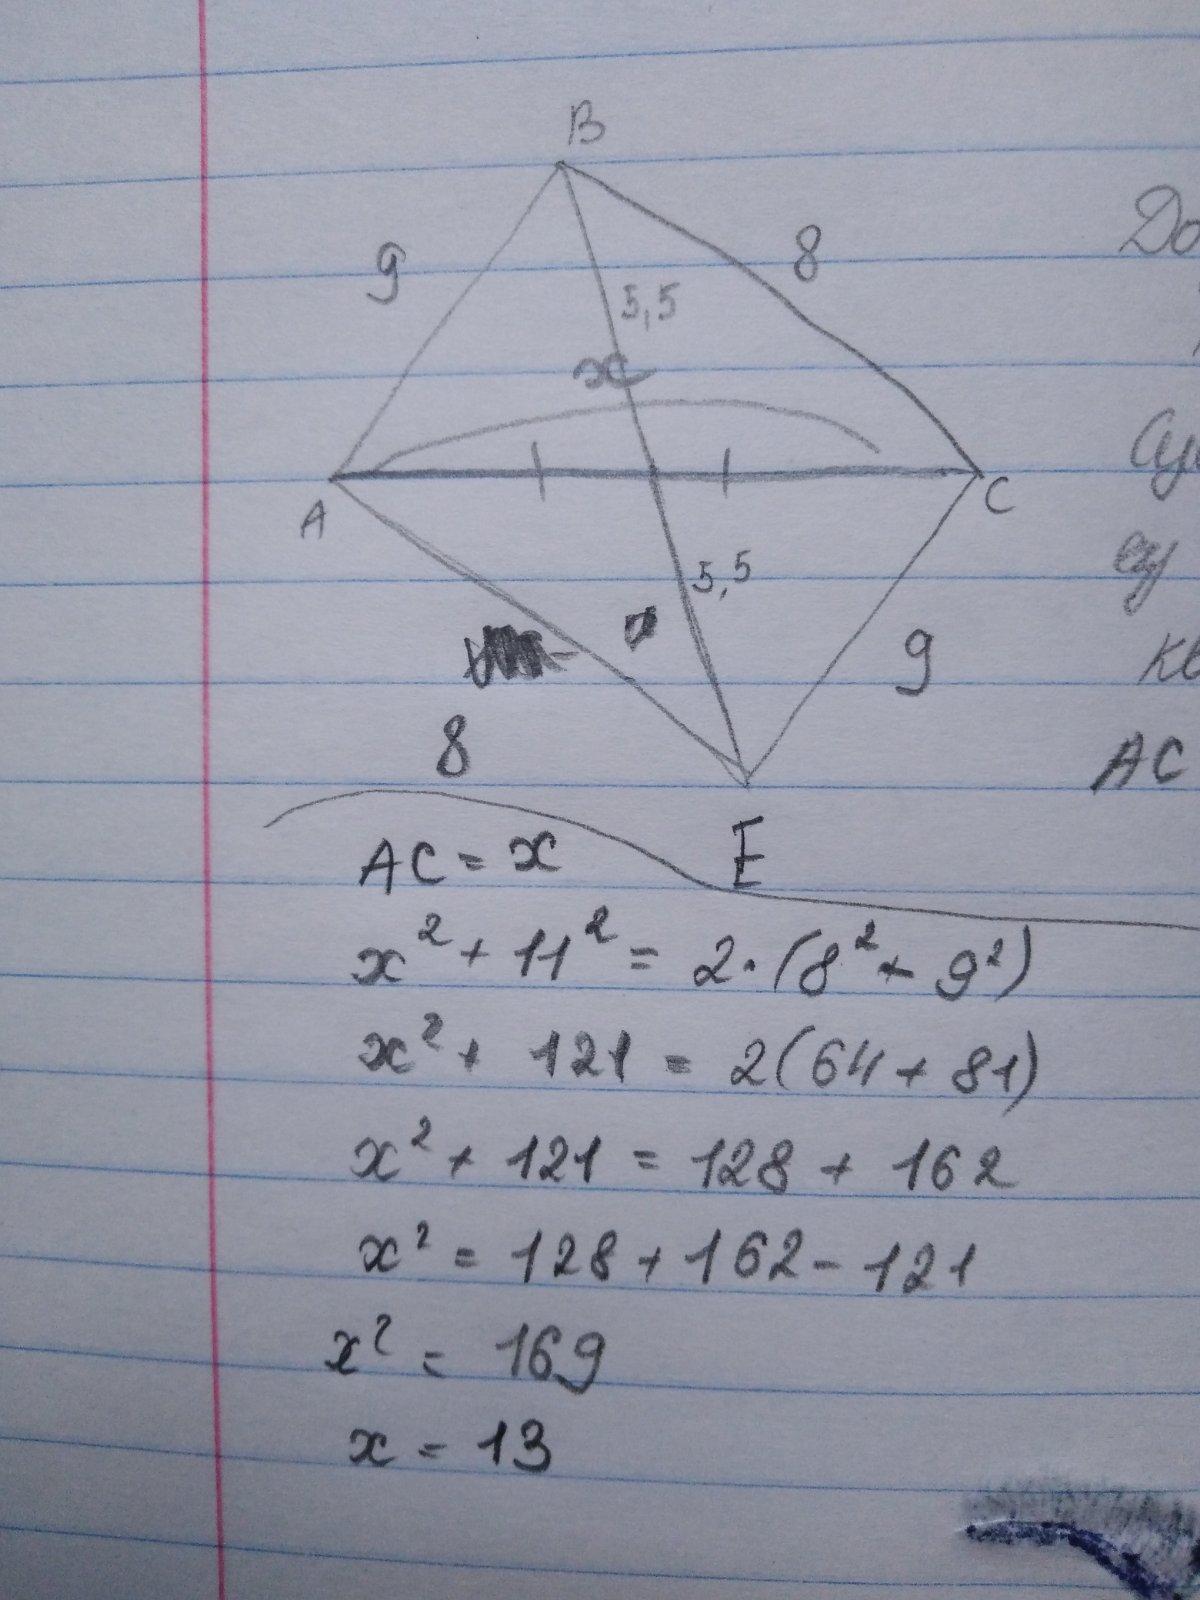 B
До
9
8
5,5
x
A
C
5,5
9
8
AC
E
AC = x
x² + 11² = 2·(8² + 9²)
x² + 121 = 2(64 + 81)
x² + 121 = 128 + 162
x² = 128 + 162 - 121
x² = 169
x = 13